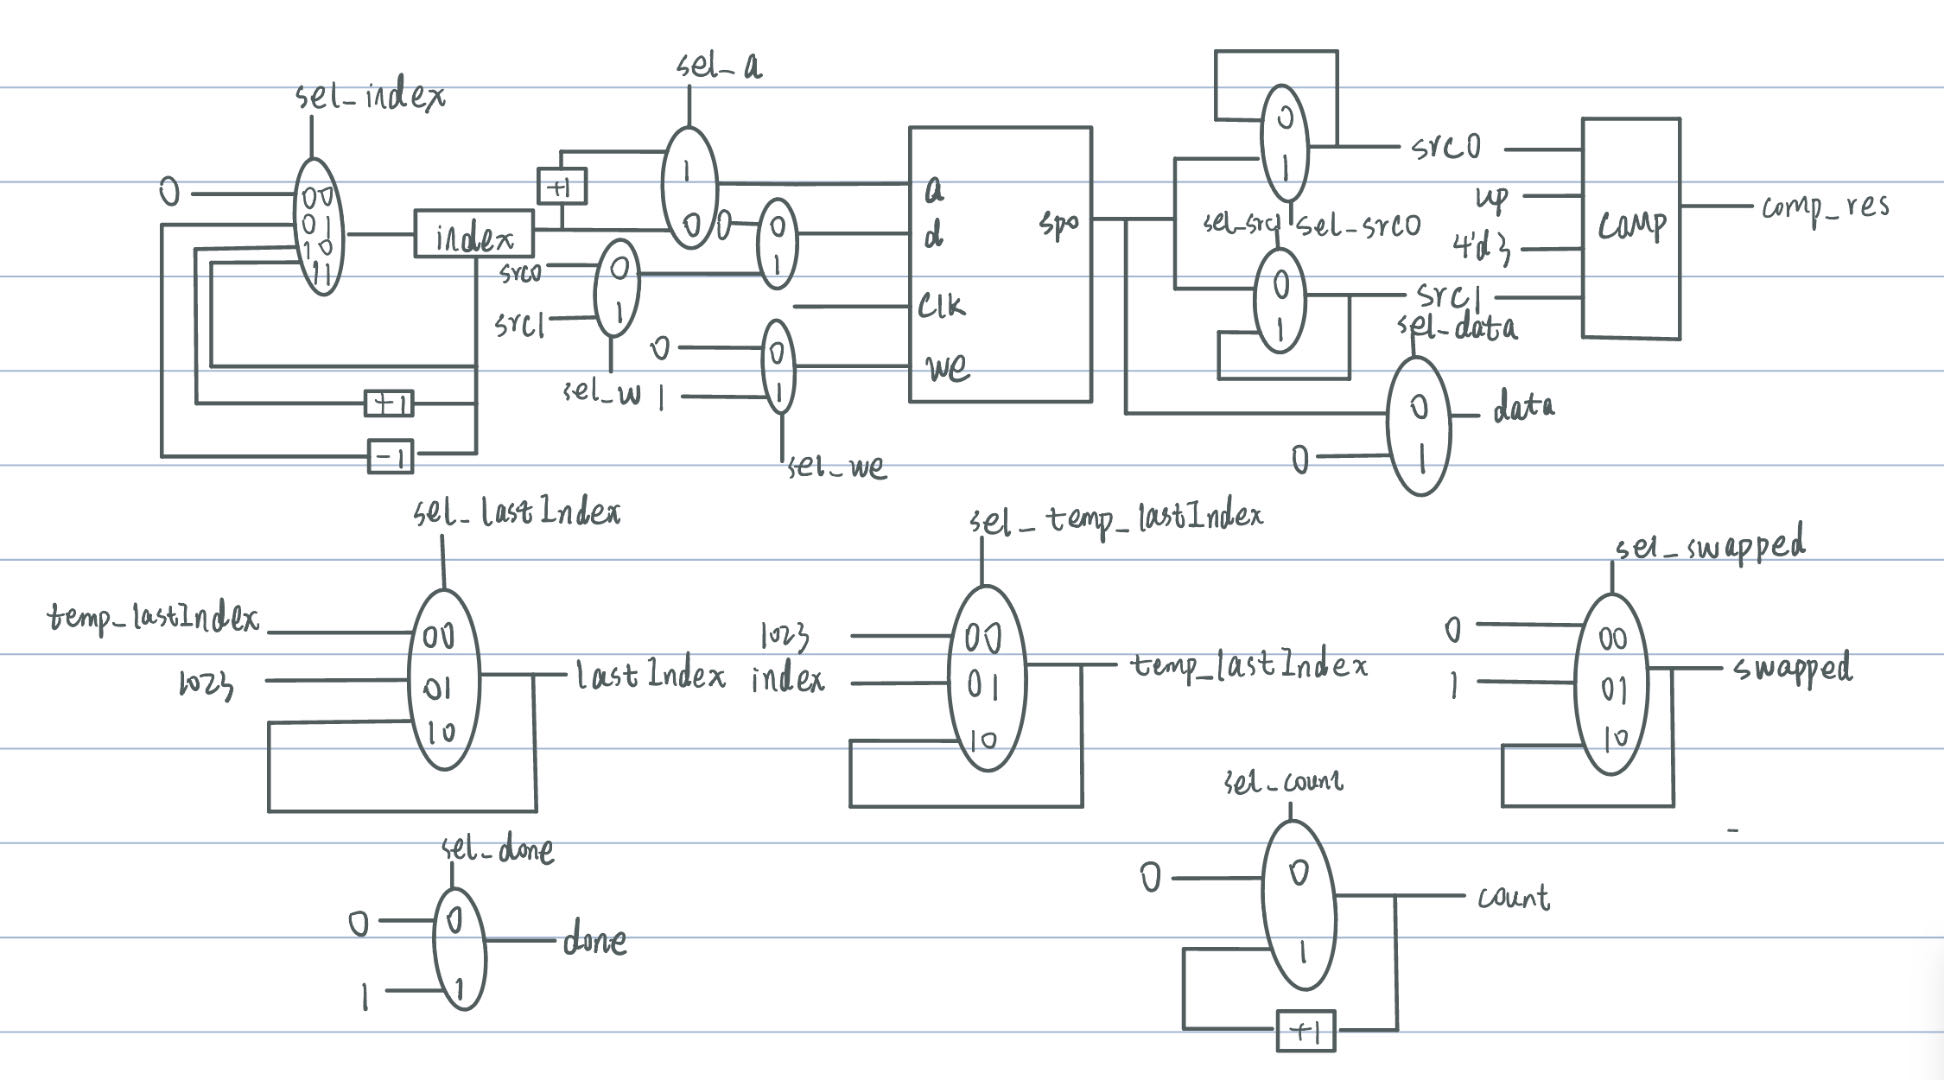 sel_a
sel_index
0
00
01
10
11
index
+1
1
0
+1
-1
src0
src1
0
1
sel_w
0
0
1
0
1
0
1
sel_we
a
d
clk
we
spo
0
1
sel_src1
sel_src0
0
1
src0
up
4'd3
src1
comp
comp_res
sel_data
0
0
1
data
sel_lastIndex
temp_lastIndex
1023
00
01
10
lastIndex
sel_temp_lastIndex
1023
index
00
01
10
temp_lastIndex
sel_swapped
0
1
00
01
10
swapped
sel_done
0
1
0
1
done
sel_count
0
0
1
+1
count